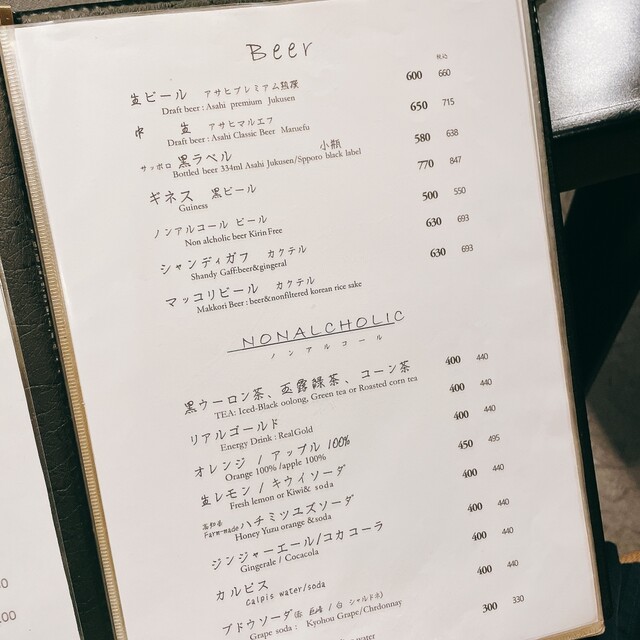 Beer
税込
生ビール アサヒプレミアム熟撰 600 660
Draft beer : Asahi premium Jukusen
中 生 アサヒマルエフ 650 715
Draft beer : Asahi Classic Beer Maruefu
サッポロ 黒ラベル 小瓶 580 638
Bottled beer 334ml Asahi Jukusen/Spporo black label
ギネス 黒ビール 770 847
Guiness
ノンアルコール ビール 500 550
Non alcholic beer Kirin Free
シャンディガフ カクテル 630 693
Shandy Gaff:beer&gingeral
マッコリビール カクテル 630 693
Makkori Beer : beer&nonfiltered korean rice sake
NONALCHOLIC
ノンアルコール
黒ウーロン茶、玉露緑茶、コーン茶 400 440
TEA: Iced-Black oolong, Green tea or Roasted corn tea
リアルゴールド 400 440
Energy Drink : RealGold
オレンジ / アップル 100% 400 440
Orange 100% /apple 100%
生レモン / キウイソーダ 450 495
Fresh lemon or Kiwi& soda
高知県 Farm-made ハチミツユズソーダ 400 440
Honey Yuzu orange &soda
ジンジャーエール/コカコーラ 400 440
Gingerale / Cocacola
カルピス 400 440
Calpis water/soda
ブドウソーダ(赤 巨峰 / 白 シャルドネ) 400 440
Grape soda : Kyohou Grape/Chrdonnay
300 330
water
0
.00